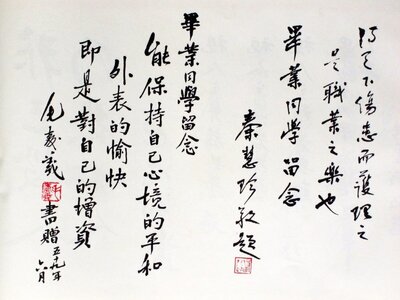 得天下傷患而護理之
是職業之樂也
畢業同學留念
秦慧珍敬題
畢業同學留念
能保持自己心境的平和
外表的愉快
即是對自己的增資
書贈 五九年
六月